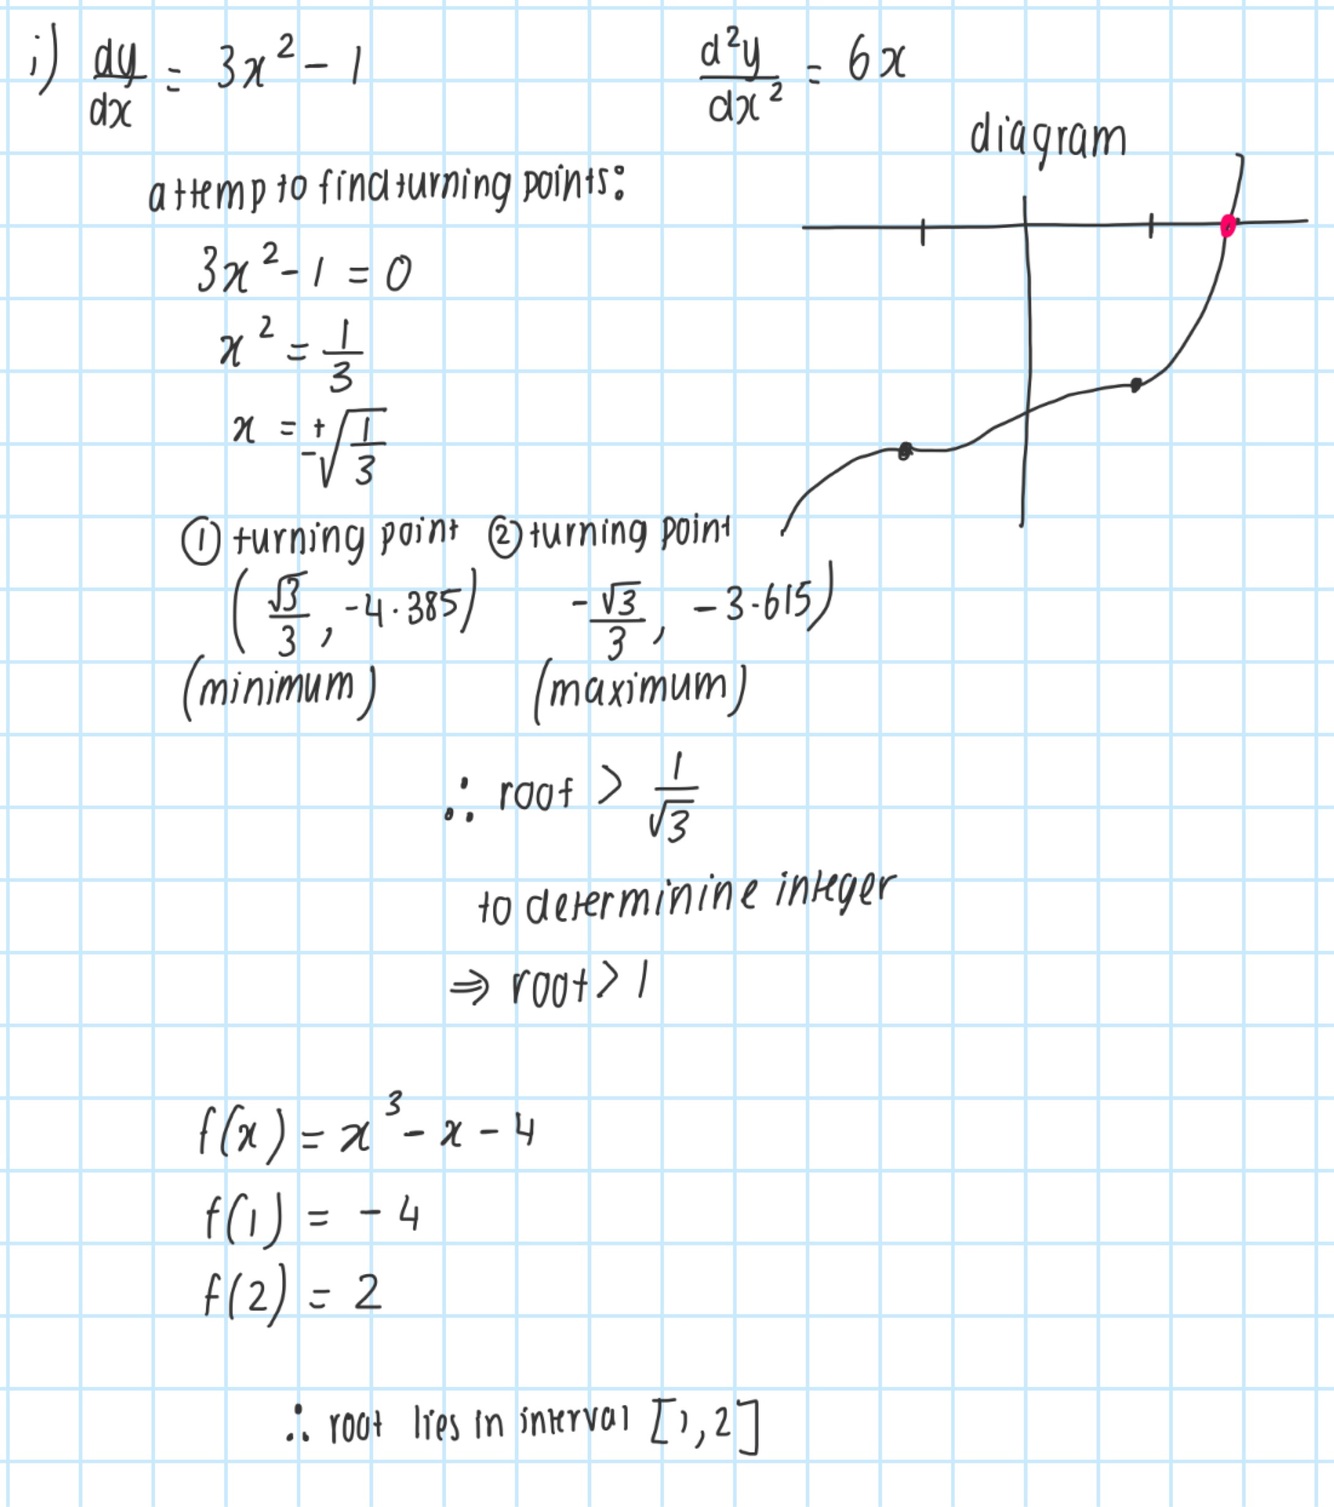 i) dy/dx = 3x² - 1    d²y/dx² = 6x
diagram
attemp to find turning points:
3x² - 1 = 0
x² = 1/3
x = ±√(1/3)
① turning point ② turning point
(√3/3, -4.385)    -√3/3, -3.615)
(minimum)    (maximum)
∴ root > 1/√3
to determinine integer
⇒ root > 1
f(x) = x³ - x - 4
f(1) = - 4
f(2) = 2
∴ root lies in interval [1,2]